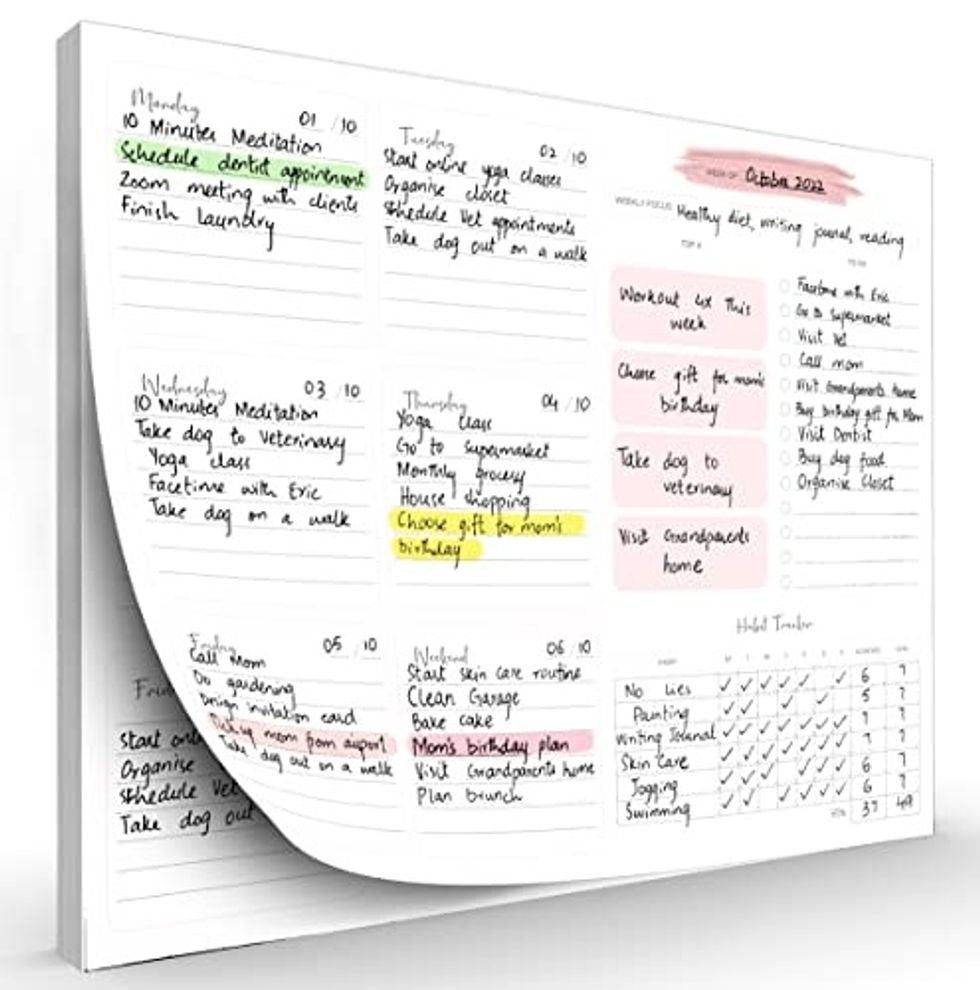 Monday 01 / 10
10 Minutes Meditation
Schedule dentist appointment
Zoom meeting with clients
Finish laundry
Tuesday 02 / 10
Start online yoga classes
Organise closet
Schedule Vet appointments
Take dog out on a walk
WEEK OF October 2022
WEEKLY FOCUS Healthy diet, writing journal, reading
Workout 4x this
week
Choose gift for mom's
birthday
Take dog to
veterinary
Visit Grandparents
home
TO DO
Facetime with Eric
Go to Supermarket
Visit Vet
Call mom
Visit Grandparents home
Buy birthday gift for Mom
Visit Dentist
Buy dog food
Organise Closet
Wednesday 03 / 10
10 Minutes Meditation
Take dog to Veterinary
Yoga class
Facetime with Eric
Take dog on a walk
Thursday 04 / 10
Yoga class
Go to supermarket
Monthly grocery
House shopping
Choose gift for mom's
birthday
Friday 05 / 10
Call Mom
Do gardening
Design invitation card
mom from airport
Take dog out on a walk
Weekend 06 / 10
Start skin care routine
Clean Garage
Bake cake
Mom's birthday plan
Visit Grandparents home
Plan brunch
Habit Tracker
No Lies ✓ ✓ ✓ ✓ ✓ ✓ 6 7
Painting ✓ ✓ ✓ ✓ 5 7
Writing Journal ✓ ✓ ✓ ✓ ✓ ✓ ✓ 7 7
Skin Care ✓ ✓ ✓ ✓ ✓ ✓ ✓ 7 7
Jogging ✓ ✓ ✓ ✓ ✓ ✓ 6 7
Swimming ✓ ✓ ✓ ✓ ✓ ✓ 6 7
37 49
Start
Organise
Schedule Vet
Take dog out